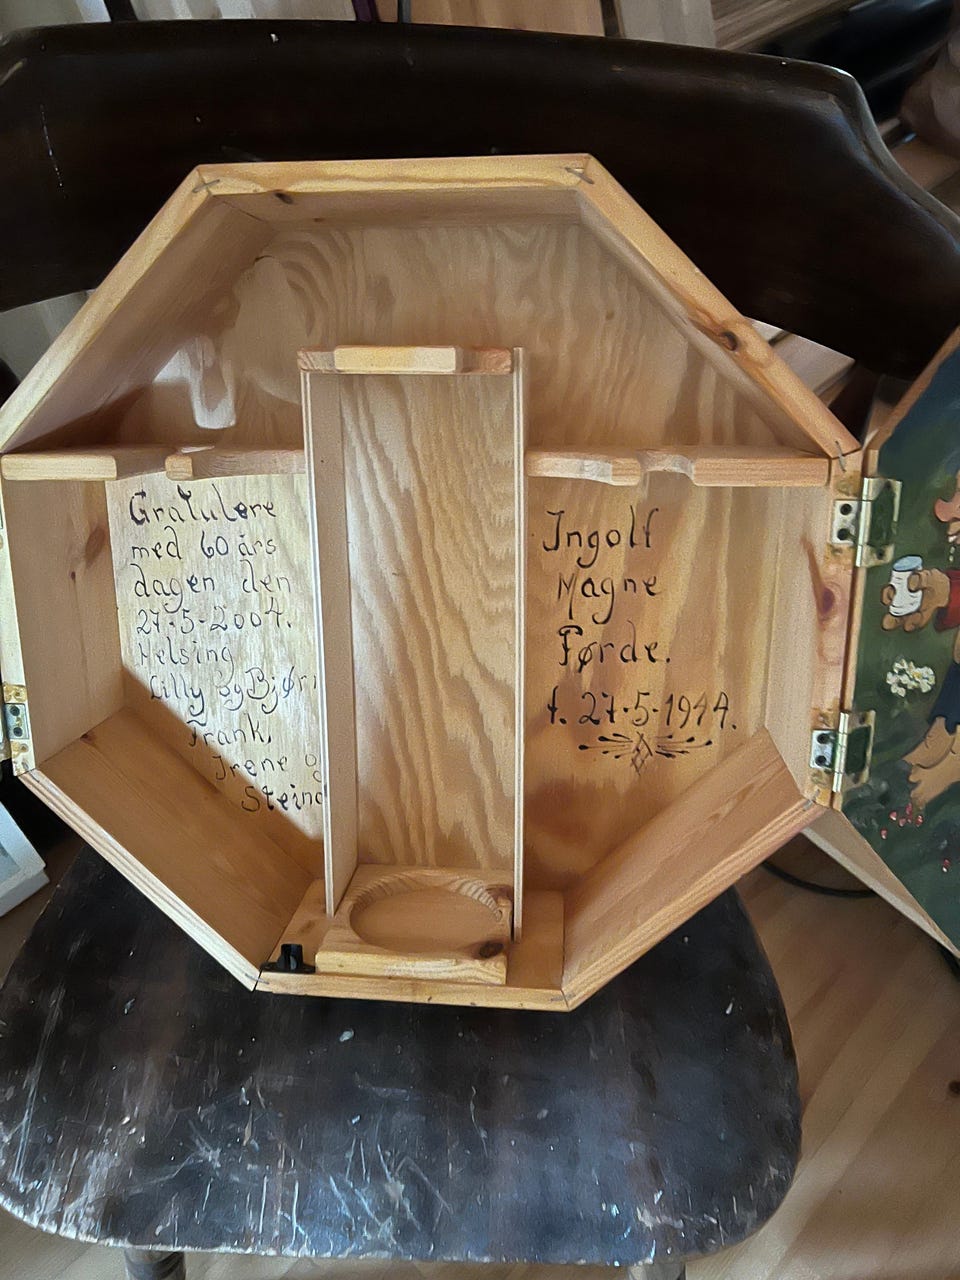 Gratulere
med 60 års
dagen den
27-5-2004.
Helsing
Lilly og Bjørn
Frank,
Irene og
Ingolf
Magne
Førde.
f. 27-5-1944.